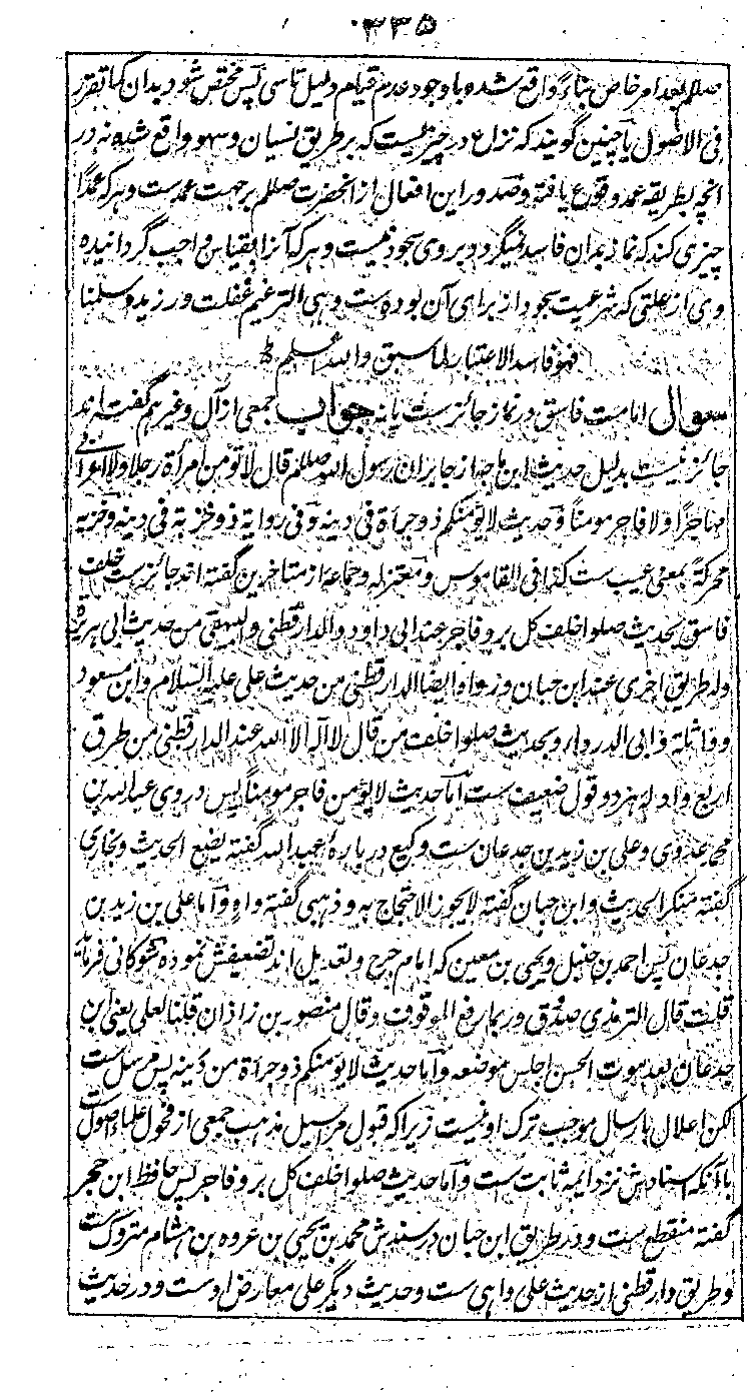 ۳۳۵
صللم بعد امر خاص بنا گو واقع شده باوجود عدم قیام دلیل تاسی پس مختص شود بدان کما تقرر
فی الاصول یا چنین گویند که نزاع در چیزیست که بر طریق نسیان و سهو واقع شده نه در
انچه بطریقه عمد وقوع یافته وصدور این افعال از انحضرت صللم بر جهت عمدست و هر که عمدًا
چیزی کند که نماز بدان فاسد نمیگردد بر وی سجود نیست و هر که آنرا بقیاس واجب گردانیده
وی از علتی که شرعیت سجود از برای آن بوده ست وهی الترغیم غفلت ورزیده وسلمنا
فهو فاسد الاعتبار لما سبق والله اعلم ط
سوال امامت فاسق در نماز جائزست یا نه جواب جمعی از آل و غیرهم گفته اند
جائز نیست بدلیل حدیث ابن ماجه از جابر ان رسول الله صللم قال لا تؤمن امرأة رجلا ولا اعرابی
مهاجرًا ولا فاجر مومناً و حدیث لا یؤمنکم ذو جرأة فی دینه وفی روایة ذو خزبة فی دینه و خزبه
محرکةً بمعنی عیب ست کذا فی القاموس و معتزله و جماعه از متاخرین گفته اند جائزست خلف
فاسق بحدیث صلوا خلف کل بر وفاجر عند ابی داود والدارقطنی والبیهقی من حدیث ابی هریرة
وله طریق اخری عند ابن حبان ورواه ایضًا الدارقطنی من حدیث علی علیه السلام وابن مسعود
وواثلة وابی الدرداء و بحدیث صلوا خلف من قال لا اله الا الله عند الدارقطنی من طرق
اربع و ادله هر دو قول ضعیف ست اما حدیث لا یؤمن فاجر مومناً پس در وی عبدالله بن
محمد عدوی و علی بن زید بن جدعان ست و کیع در بارۂ عبد الله گفته یضع الحدیث و بخاری
گفته منکر الحدیث و ابن حبان گفته لا یجوز الاحتجاج به و ذهبی گفته واهٍ و اما علی بن زید بن
جدعان پس احمد بن حنبل و یحیی بن معین که امام جرح و تعدیل اند تضعیفش نموده شوکانی فرماید
قلت قال الترمذی صدوق وربما رفع الموقوف وقال منصور بن زاذان قلنا لعلی یعنی ابن
جدعان بعد موت الحسن اجلس موضعه و اما حدیث لا یؤمنکم ذو جرأة من دینه پس مرسل ست
لکن اعلال بارسال موجب ترک او نیست زیرا که قبول مراسیل مذهب جمعی از فحول علماء اصول ست
با آنکه اسنادش نزد ایمه ثابت ست و اما حدیث صلوا خلف کل بر وفاجر پس حافظ ابن حجر
گفته منقطع ست و در طریق ابن حبان در سندش محمد بن یحیی بن عروه بن هشام متروک ست
و طریق دارقطنی از حدیث علی واهی ست و حدیث دیگر علی معارض اوست و در حدیث